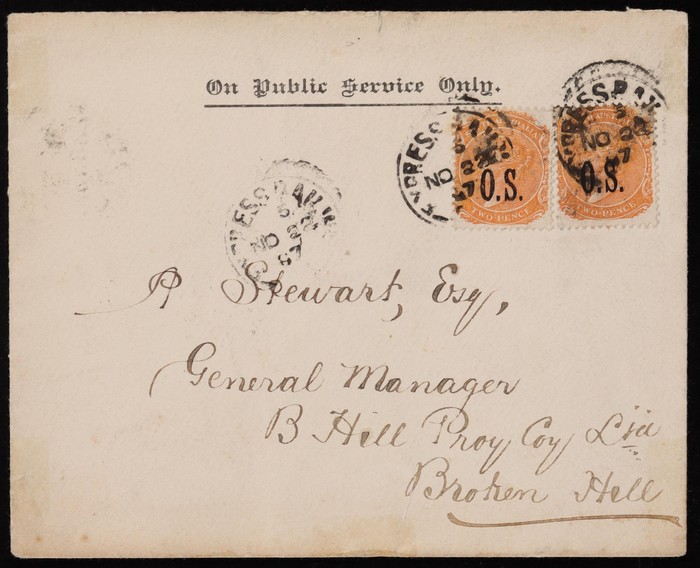 On Public Service Only.
EXPRESS RAILW
NO 2
97
O.S.
TWO-PENCE
EXPRESS RAILW
NO 2
97
O.S.
TWO-PENCE
EXPRESS RAILW
NO 2
A Stewart, Esq,
General Manager
B Hill Proy Coy
Broken Hill